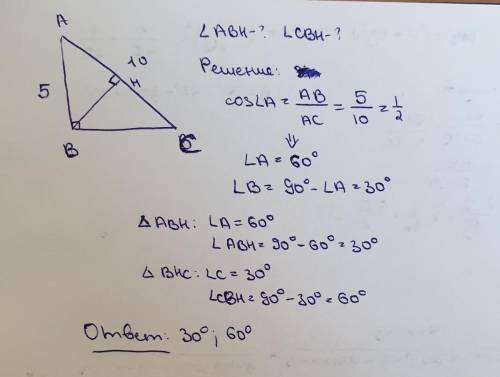 A
10
H
5
B
C
∠ABH-? ∠CBH-?
Решение:
cos∠A = AB/AC = 5/10 = 1/2
⇓
∠A = 60°
∠B = 90° - ∠A = 30°
△ABH: ∠A = 60°
∠ABH = 90° - 60° = 30°
△BHC: ∠C = 30°
∠CBH = 90° - 30° = 60°
Ответ: 30°; 60°